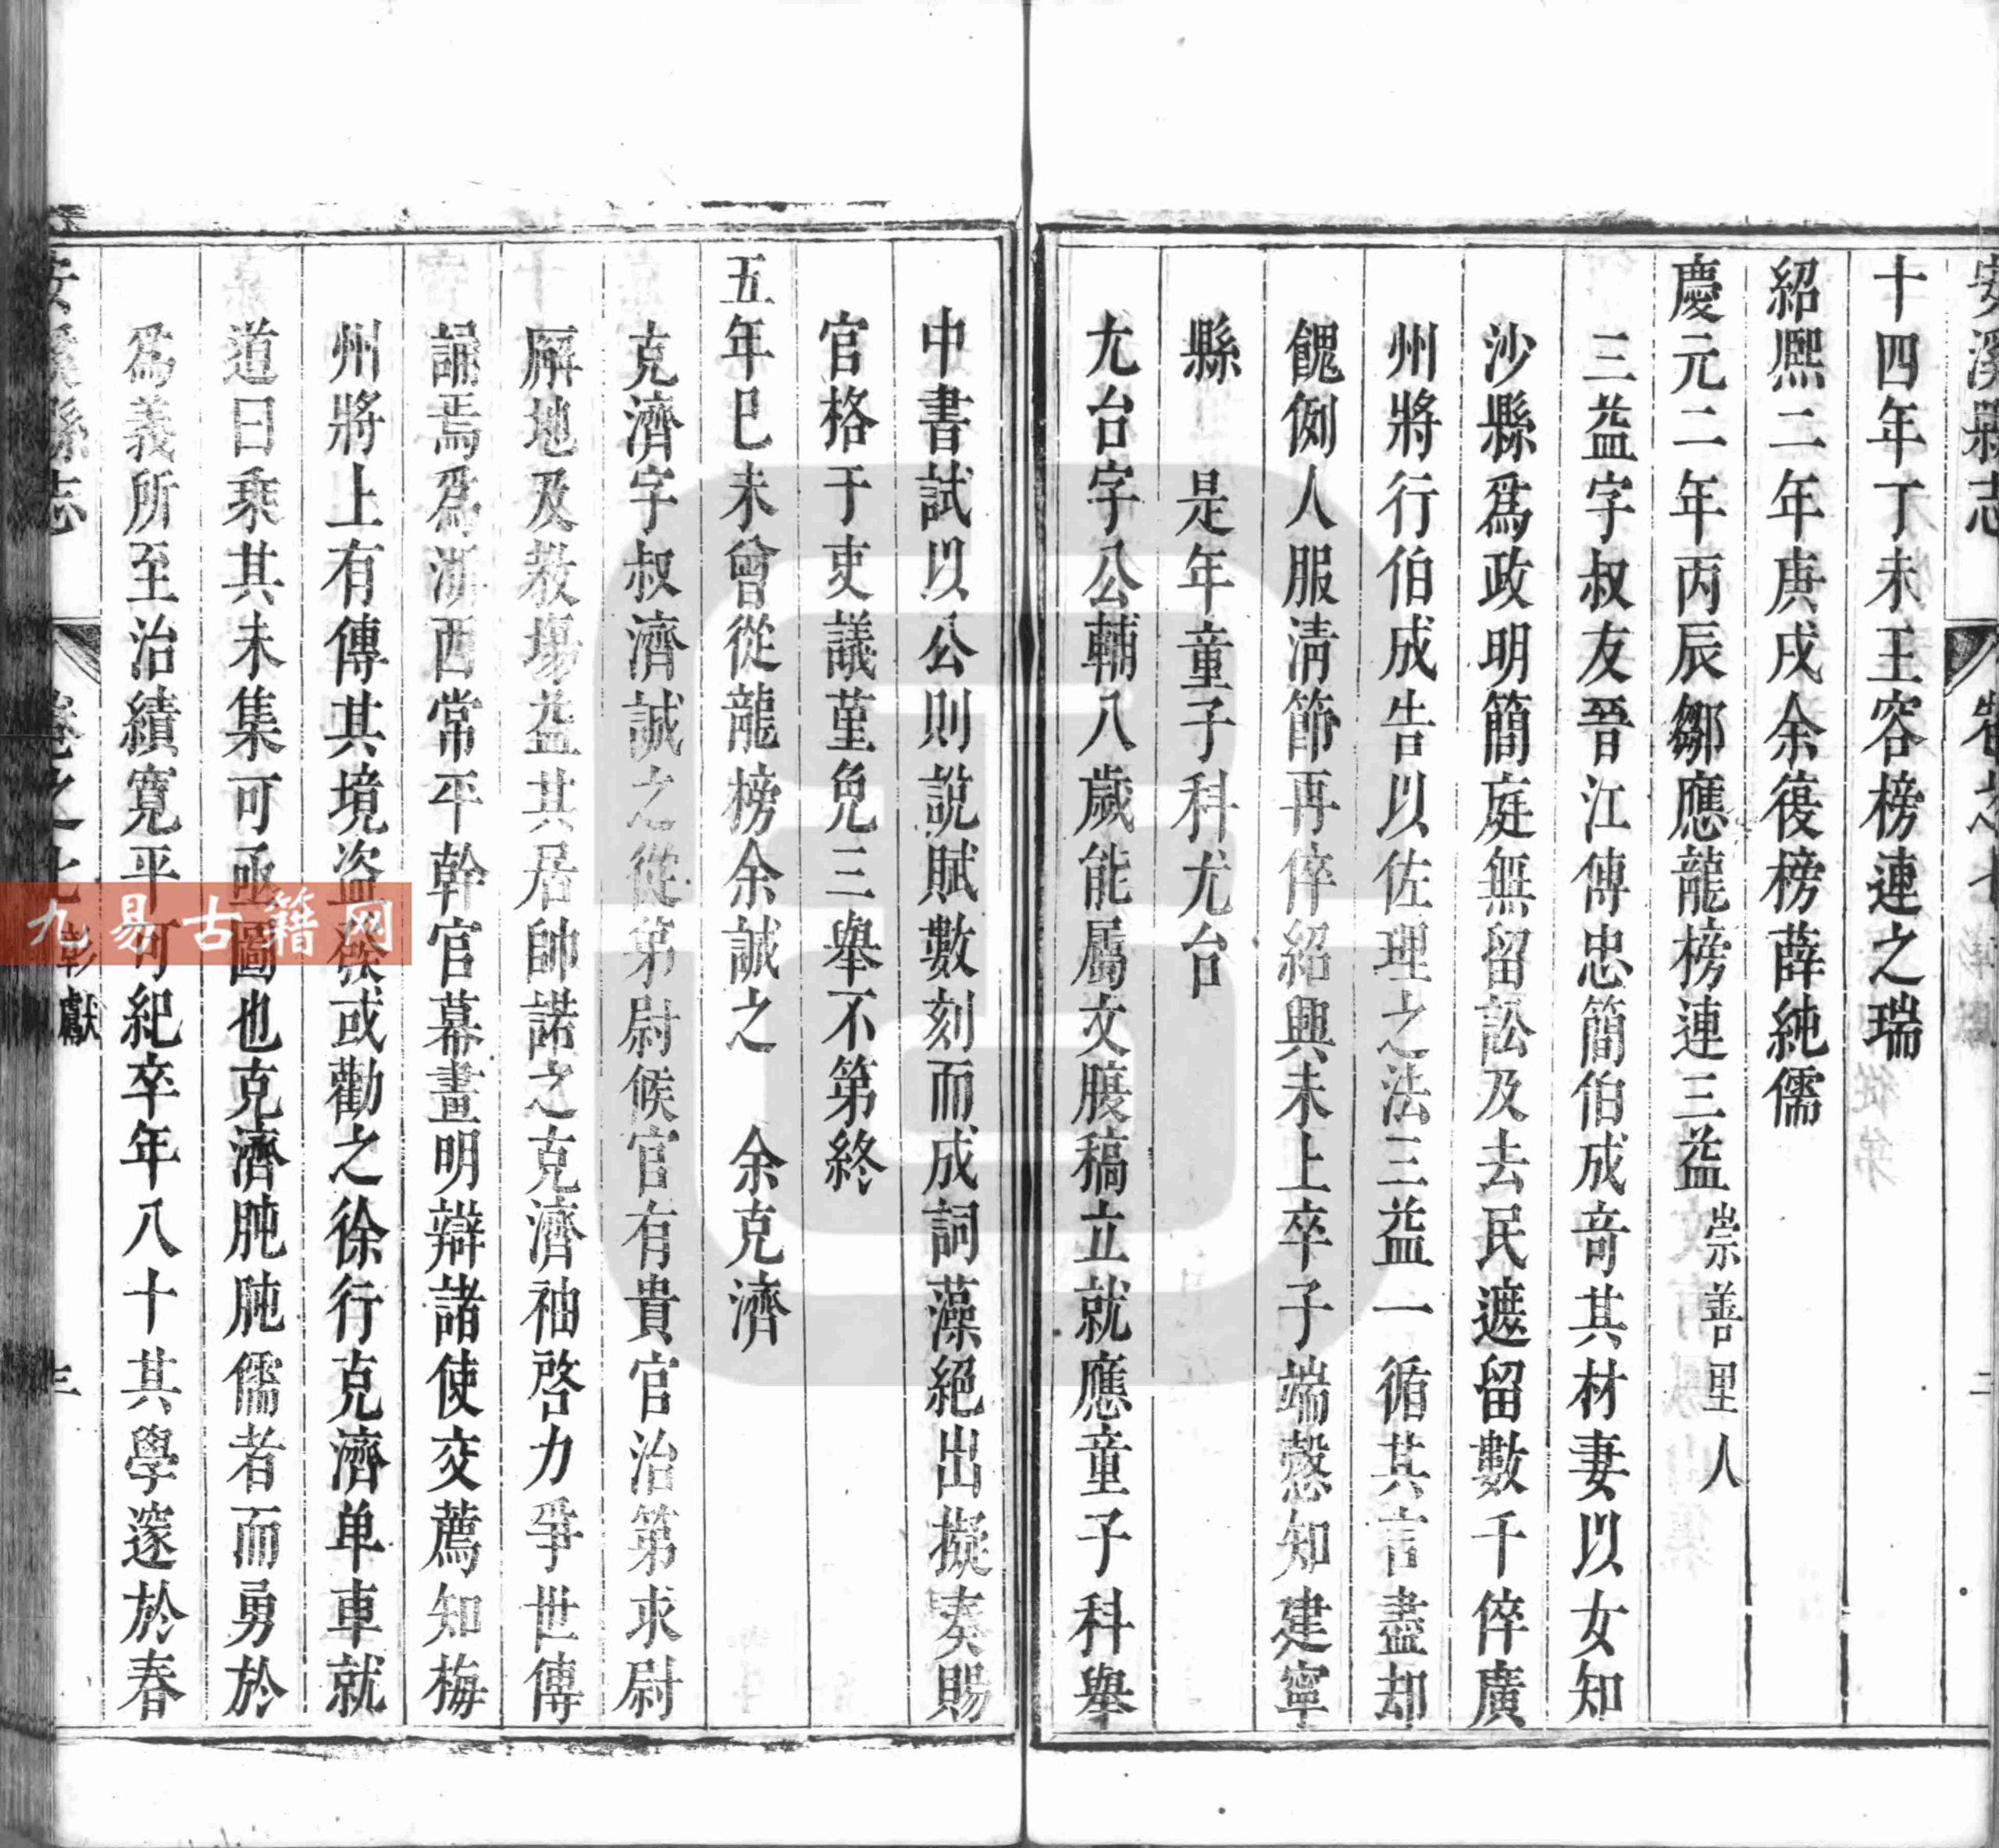 安溪縣志 卷之七 彰獻 二
十四年丁未王容榜連之瑞
紹熙二年庚戌余復榜薛純儒
慶元二年丙辰鄒應龍榜連三益崇善里人
三益字叔友晉江傅忠簡伯成竒其材妻以女知
沙縣爲政明簡庭無留訟及去民遮留數千倅廣
州將行伯成告以佐理之法三益一循其言盡却
餽例人服淸節再倅紹興未上卒子端慤知建寧
縣 是年童子科尤台
尤台字公輔八歲能屬文腹稿立就應童子科舉
中書試以公則說賦數刻而成詞藻絕出擬奏賜
官格于吏議堇免三舉不第終
五年巳未曾從龍榜余誠之 余克濟
克濟字叔濟誠之從第尉候官有貴官治第求尉
廨地及敎塲益其居帥諾之克濟袖啓力爭世傳
誦焉爲浙西常平幹官幕畫明辯諸使交薦知梅
州將上有傳其境盗發或勸之徐行克濟单車就
道曰乘其未集可亟圖也克濟肫肫儒者而勇於
爲義所至治績寬平可紀卒年八十其學邃於春
安溪縣志 卷之七 彰獻 三
九易古籍网